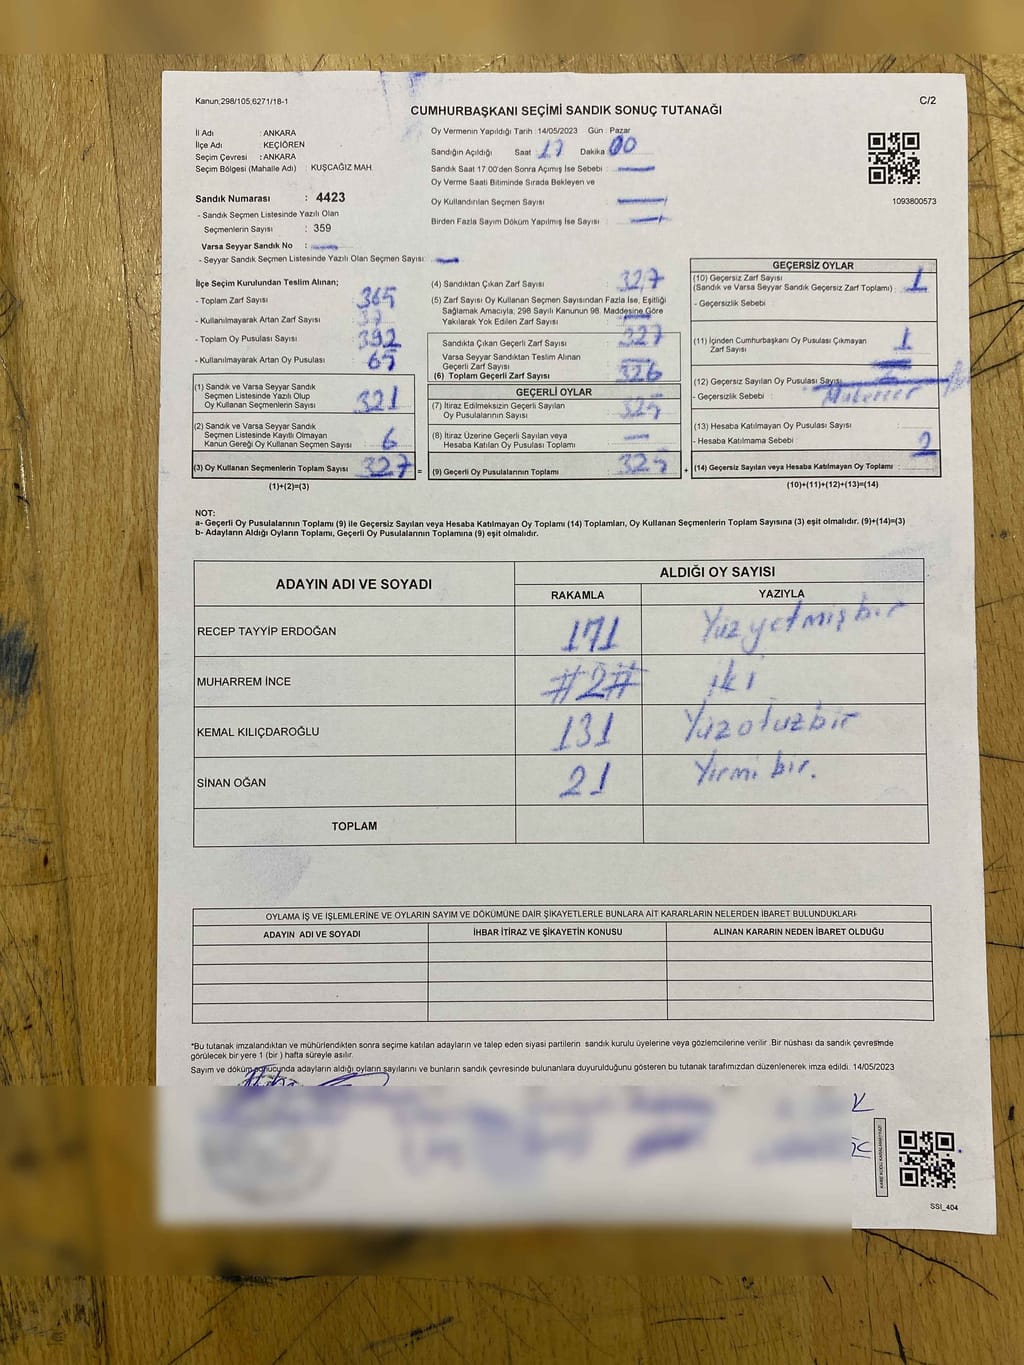 Kanun;298/105,6271/18-1
C/2
CUMHURBAŞKANI SEÇİMİ SANDIK SONUÇ TUTANAĞI
İl Adı : ANKARA
İlçe Adı : KEÇİÖREN
Seçim Çevresi : ANKARA
Seçim Bölgesi (Mahalle Adı) KUŞCAĞIZ MAH.
Sandık Numarası : 4423
- Sandık Seçmen Listesinde Yazılı Olan
Seçmenlerin Sayısı : 359
Varsa Seyyar Sandık No :
- Seyyar Sandık Seçmen Listesinde Yazılı Olan Seçmen Sayısı:
Oy Vermenin Yapıldığı Tarih : 14/05/2023 Gün : Pazar
Sandığın Açıldığı Saat : 17 Dakika : 00
Sandık Saat 17:00'den Sonra Açımış İse Sebebi :
Oy Verme Saati Bitiminde Sırada Bekleyen ve
Oy Kullandırılan Seçmen Sayısı :
Birden Fazla Sayım Döküm Yapılmış İse Sayısı :
1093800573
İlçe Seçim Kurulundan Teslim Alınan;
- Toplam Zarf Sayısı : 365
- Kullanılmayarak Artan Zarf Sayısı :
- Toplam Oy Pusulası Sayısı : 392
- Kullanılmayarak Artan Oy Pusulası : 65
(1) Sandık ve Varsa Seyyar Sandık
Seçmen Listesinde Yazılı Olup
Oy Kullanan Seçmenlerin Sayısı : 321
(2) Sandık ve Varsa Seyyar Sandık
Seçmen Listesinde Kayıtlı Olmayan
Kanun Gereği Oy Kullanan Seçmen Sayısı : 6
(3) Oy Kullanan Seçmenlerin Toplam Sayısı : 327 =
(1)+(2)=(3)
(4) Sandıktan Çıkan Zarf Sayısı : 327
(5) Zarf Sayısı Oy Kullanan Seçmen Sayısından Fazla İse, Eşitliği
Sağlamak Amacıyla; 298 Sayılı Kanunun 98. Maddesine Göre
Yakılarak Yok Edilen Zarf Sayısı :
Sandıkta Çıkan Geçerli Zarf Sayısı : 327
Varsa Seyyar Sandıktan Teslim Alınan
Geçerli Zarf Sayısı :
(6) Toplam Geçerli Zarf Sayısı : 326
GEÇERLİ OYLAR
(7) İtiraz Edilmeksizin Geçerli Sayılan
Oy Pusulalarının Sayısı : 325
(8) İtiraz Üzerine Geçerli Sayılan veya
Hesaba Katılan Oy Pusulası Toplamı :
(9) Geçerli Oy Pusulalarının Toplamı : 325 +
GEÇERSİZ OYLAR
(10) Geçersiz Zarf Sayısı
(Sandık ve Varsa Seyyar Sandık Geçersiz Zarf Toplamı) : 1
- Geçersizlik Sebebi :
(11) İçinden Cumhurbaşkanı Oy Pusulası Çıkmayan
Zarf Sayısı : 1
(12) Geçersiz Sayılan Oy Pusulası Sayısı
- Geçersizlik Sebebi :
(13) Hesaba Katılmayan Oy Pusulası Sayısı :
- Hesaba Katılmama Sebebi : 2
(14) Geçersiz Sayılan veya Hesaba Katılmayan Oy Toplamı :
(10)+(11)+(12)+(13)=(14)
NOT:
a- Geçerli Oy Pusulalarının Toplamı (9) ile Geçersiz Sayılan veya Hesaba Katılmayan Oy Toplamı (14) Toplamları, Oy Kullanan Seçmenlerin Toplam Sayısına (3) eşit olmalıdır. (9)+(14)=(3)
b- Adayların Aldığı Oyların Toplamı, Geçerli Oy Pusulalarının Toplamına (9) eşit olmalıdır.
ADAYIN ADI VE SOYADI ALDIĞI OY SAYISI
RAKAMLA YAZIYLA
RECEP TAYYİP ERDOĞAN 171 Yüz yetmiş bir
MUHARREM İNCE #2# iki
KEMAL KILIÇDAROĞLU 131 Yüz otuz bir
SİNAN OĞAN 21 Yirmi bir.
TOPLAM
OYLAMA İŞ VE İŞLEMLERİNE VE OYLARIN SAYIM VE DÖKÜMÜNE DAİR ŞİKAYETLERLE BUNLARA AİT KARARLARIN NELERDEN İBARET BULUNDUKLARI
ADAYIN ADI VE SOYADI İHBAR İTİRAZ VE ŞİKAYETİN KONUSU ALINAN KARARIN NEDEN İBARET OLDUĞU
*Bu tutanak imzalandıktan ve mühürlendikten sonra seçime katılan adayların ve talep eden siyasi partilerin sandık kurulu üyelerine veya gözlemcilerine verilir .Bir nüshası da sandık çevresinde
görülecek bir yere 1 (bir ) hafta süreyle asılır.
Sayım ve döküm sonucunda adayların aldığı oyların sayılarını ve bunların sandık çevresinde bulunanlara duyurulduğunu gösteren bu tutanak tarafımızdan düzenlenerek imza edildi. 14/05/2023
KARE KODU KARALAMAYINIZ!
SSI_404